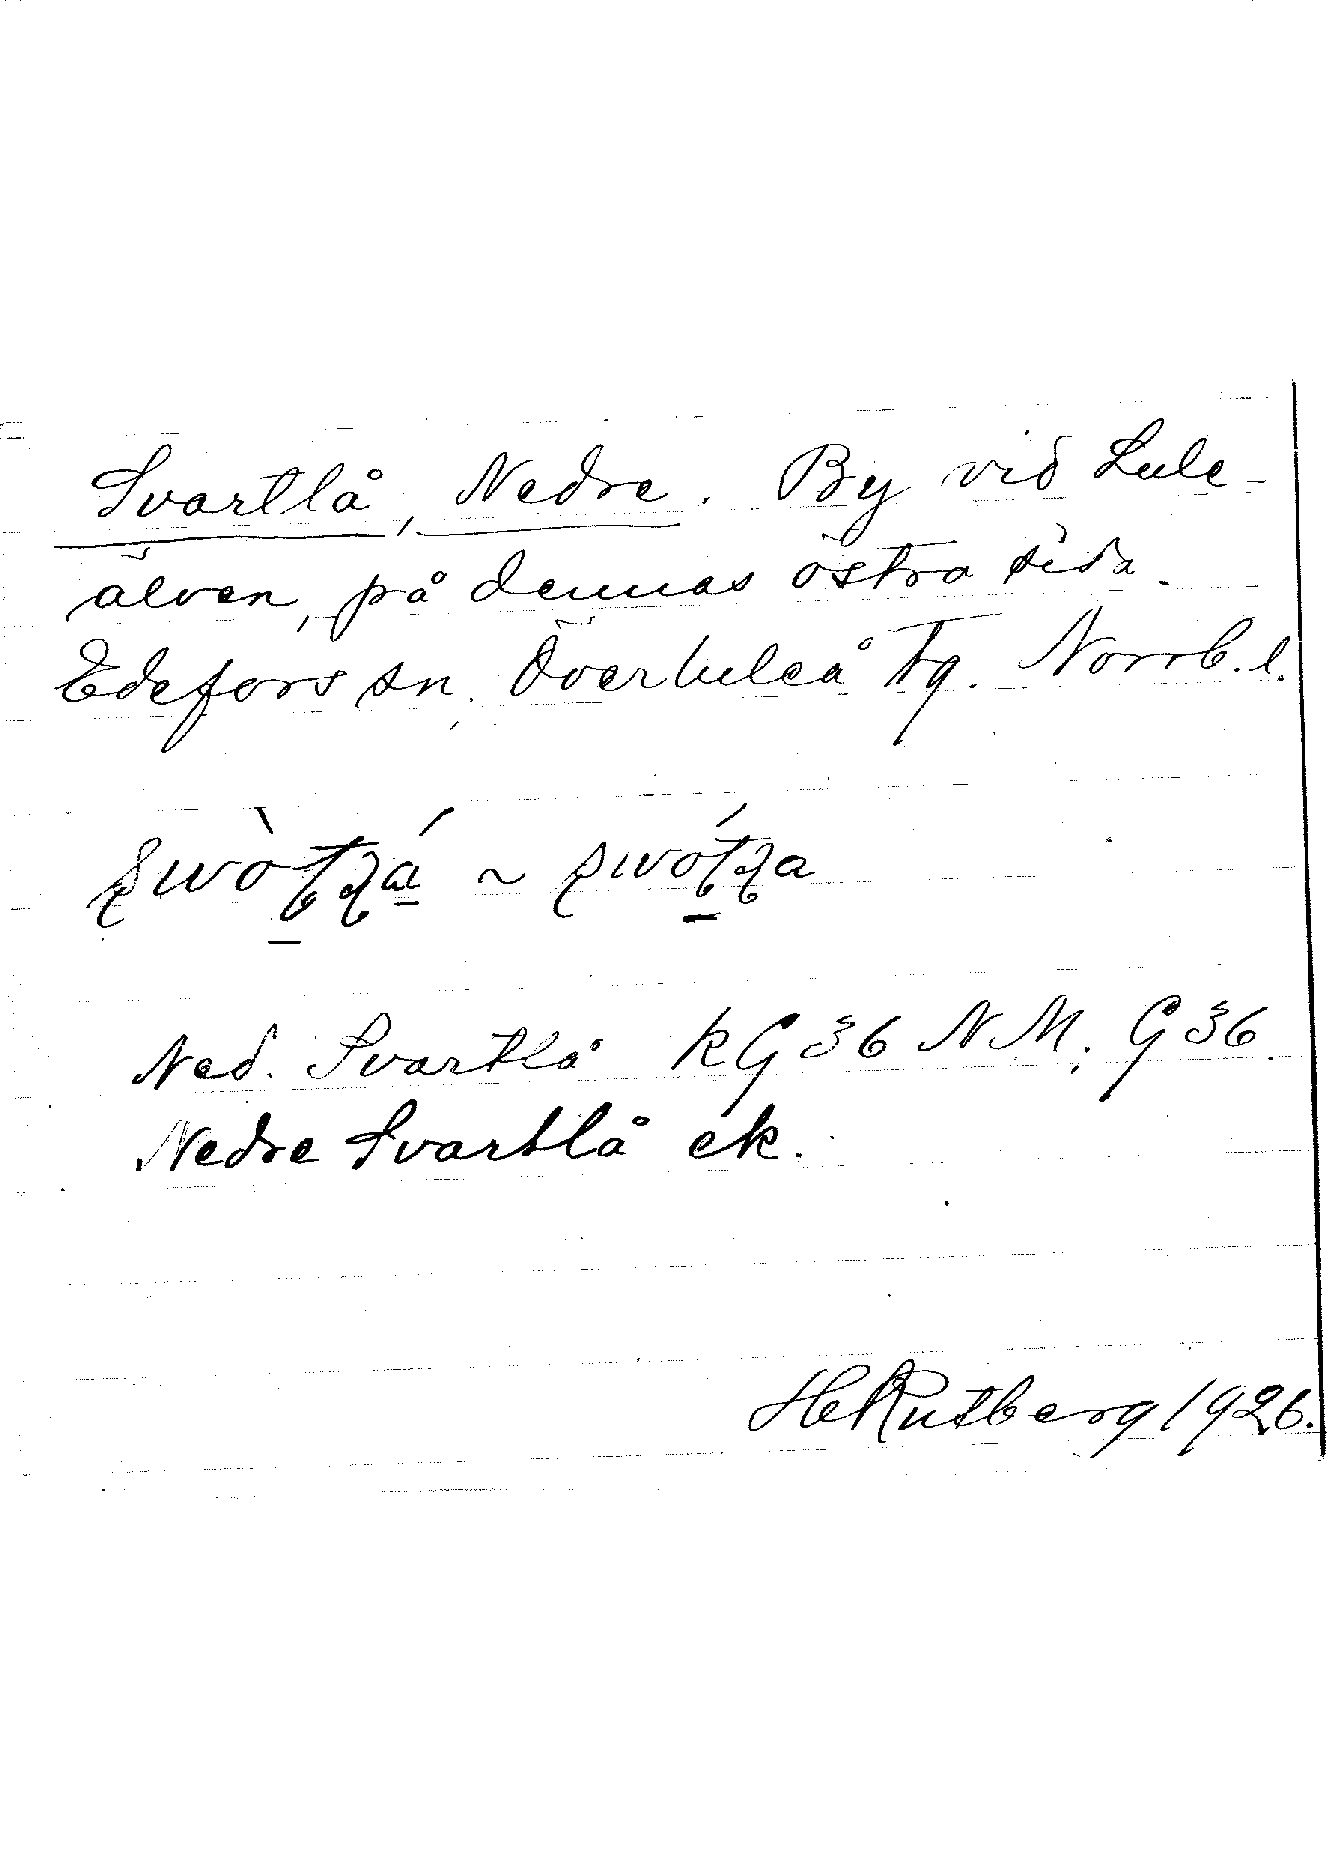 Svartlå, Nedre. By vid Lule-
älven, på dennas östra sida.
Edefors sn. Överluleå Tg. Norrb. l.
Ned. Svartlå kG 36 NM. G 36.
Nedre Svartlå ek.
HeRutberg 1926.